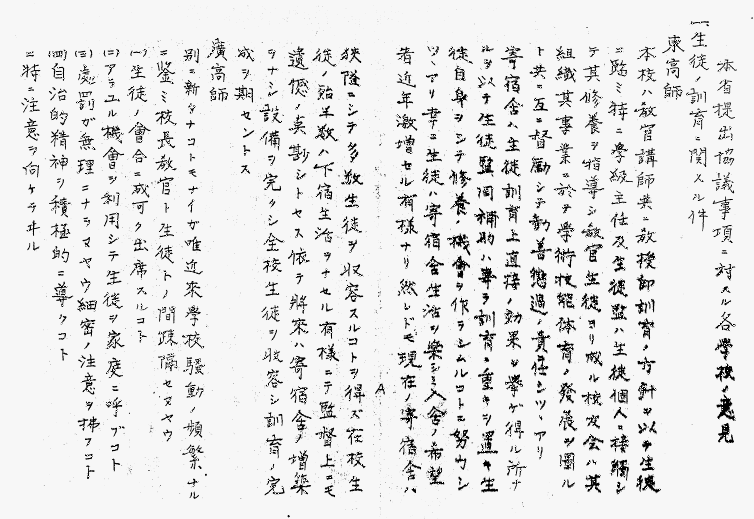 本省提出協議事項ニ対スル各学校ノ意見
一、生徒ノ訓育ニ関スル件
東高師
本校ハ教官講師共ニ教授即訓育ノ方針ヲ以テ生徒
ニ臨ミ特ニ学級主任及生徒監ハ生徒個人ニ接觸シ
テ其修養ヲ指導シ教官生徒ヨリ成ル校友会ハ其
組織其事業ニ於テ学術技能体育ノ発展ヲ圖ル
ト共ニ互ニ督勵シテ勧善懲過ノ責任シツヽアリ
寄宿舎ハ生徒訓育上直接ノ効果ヲ挙ゲ得ル所ナ
ルヲ以テ生徒監同補助ハ専ラ訓育ニ重キヲ置キ生
徒自身ヲシテ修養ノ機會ヲ作ラシムルコトニ努力シ
ツヽアリ幸ニ生徒ハ寄宿舎生活ヲ楽シミ入舎ノ希望
者近年激増セル有様ナリ然レドモ現在ノ寄宿舎ハ
狭隘ニシテ多数生徒ヲ収容スルコトヲ得ズ在校生
徒ノ殆半数ハ下宿生活ヲナセル有様ニテ監督上ニモ
遺憾ノ点尠シトセス依テ将来ハ寄宿舎ノ増築
ヲナシ設備ヲ完クシ全校生徒ヲ収容シ訓育ノ完
成ヲ期セントス
廣高師
別ニ新タナコトモナイガ唯近来学校騒動ノ頻繁ナル
ニ鑒ミ校長教官ト生徒トノ間疎隔セヌヤウ
(一)生徒ノ會合ニ成可ク出席スルコト
(二)アラユル機會ヲ利用シテ生徒ヲ家庭ニ呼ブコト
(三)處罰ガ無理ニナラヌヤウ細密ノ注意ヲ拂フコト
(四)自治的精神ヲ積極的ニ導クコト
ニ特ニ注意ヲ向ケテヰル